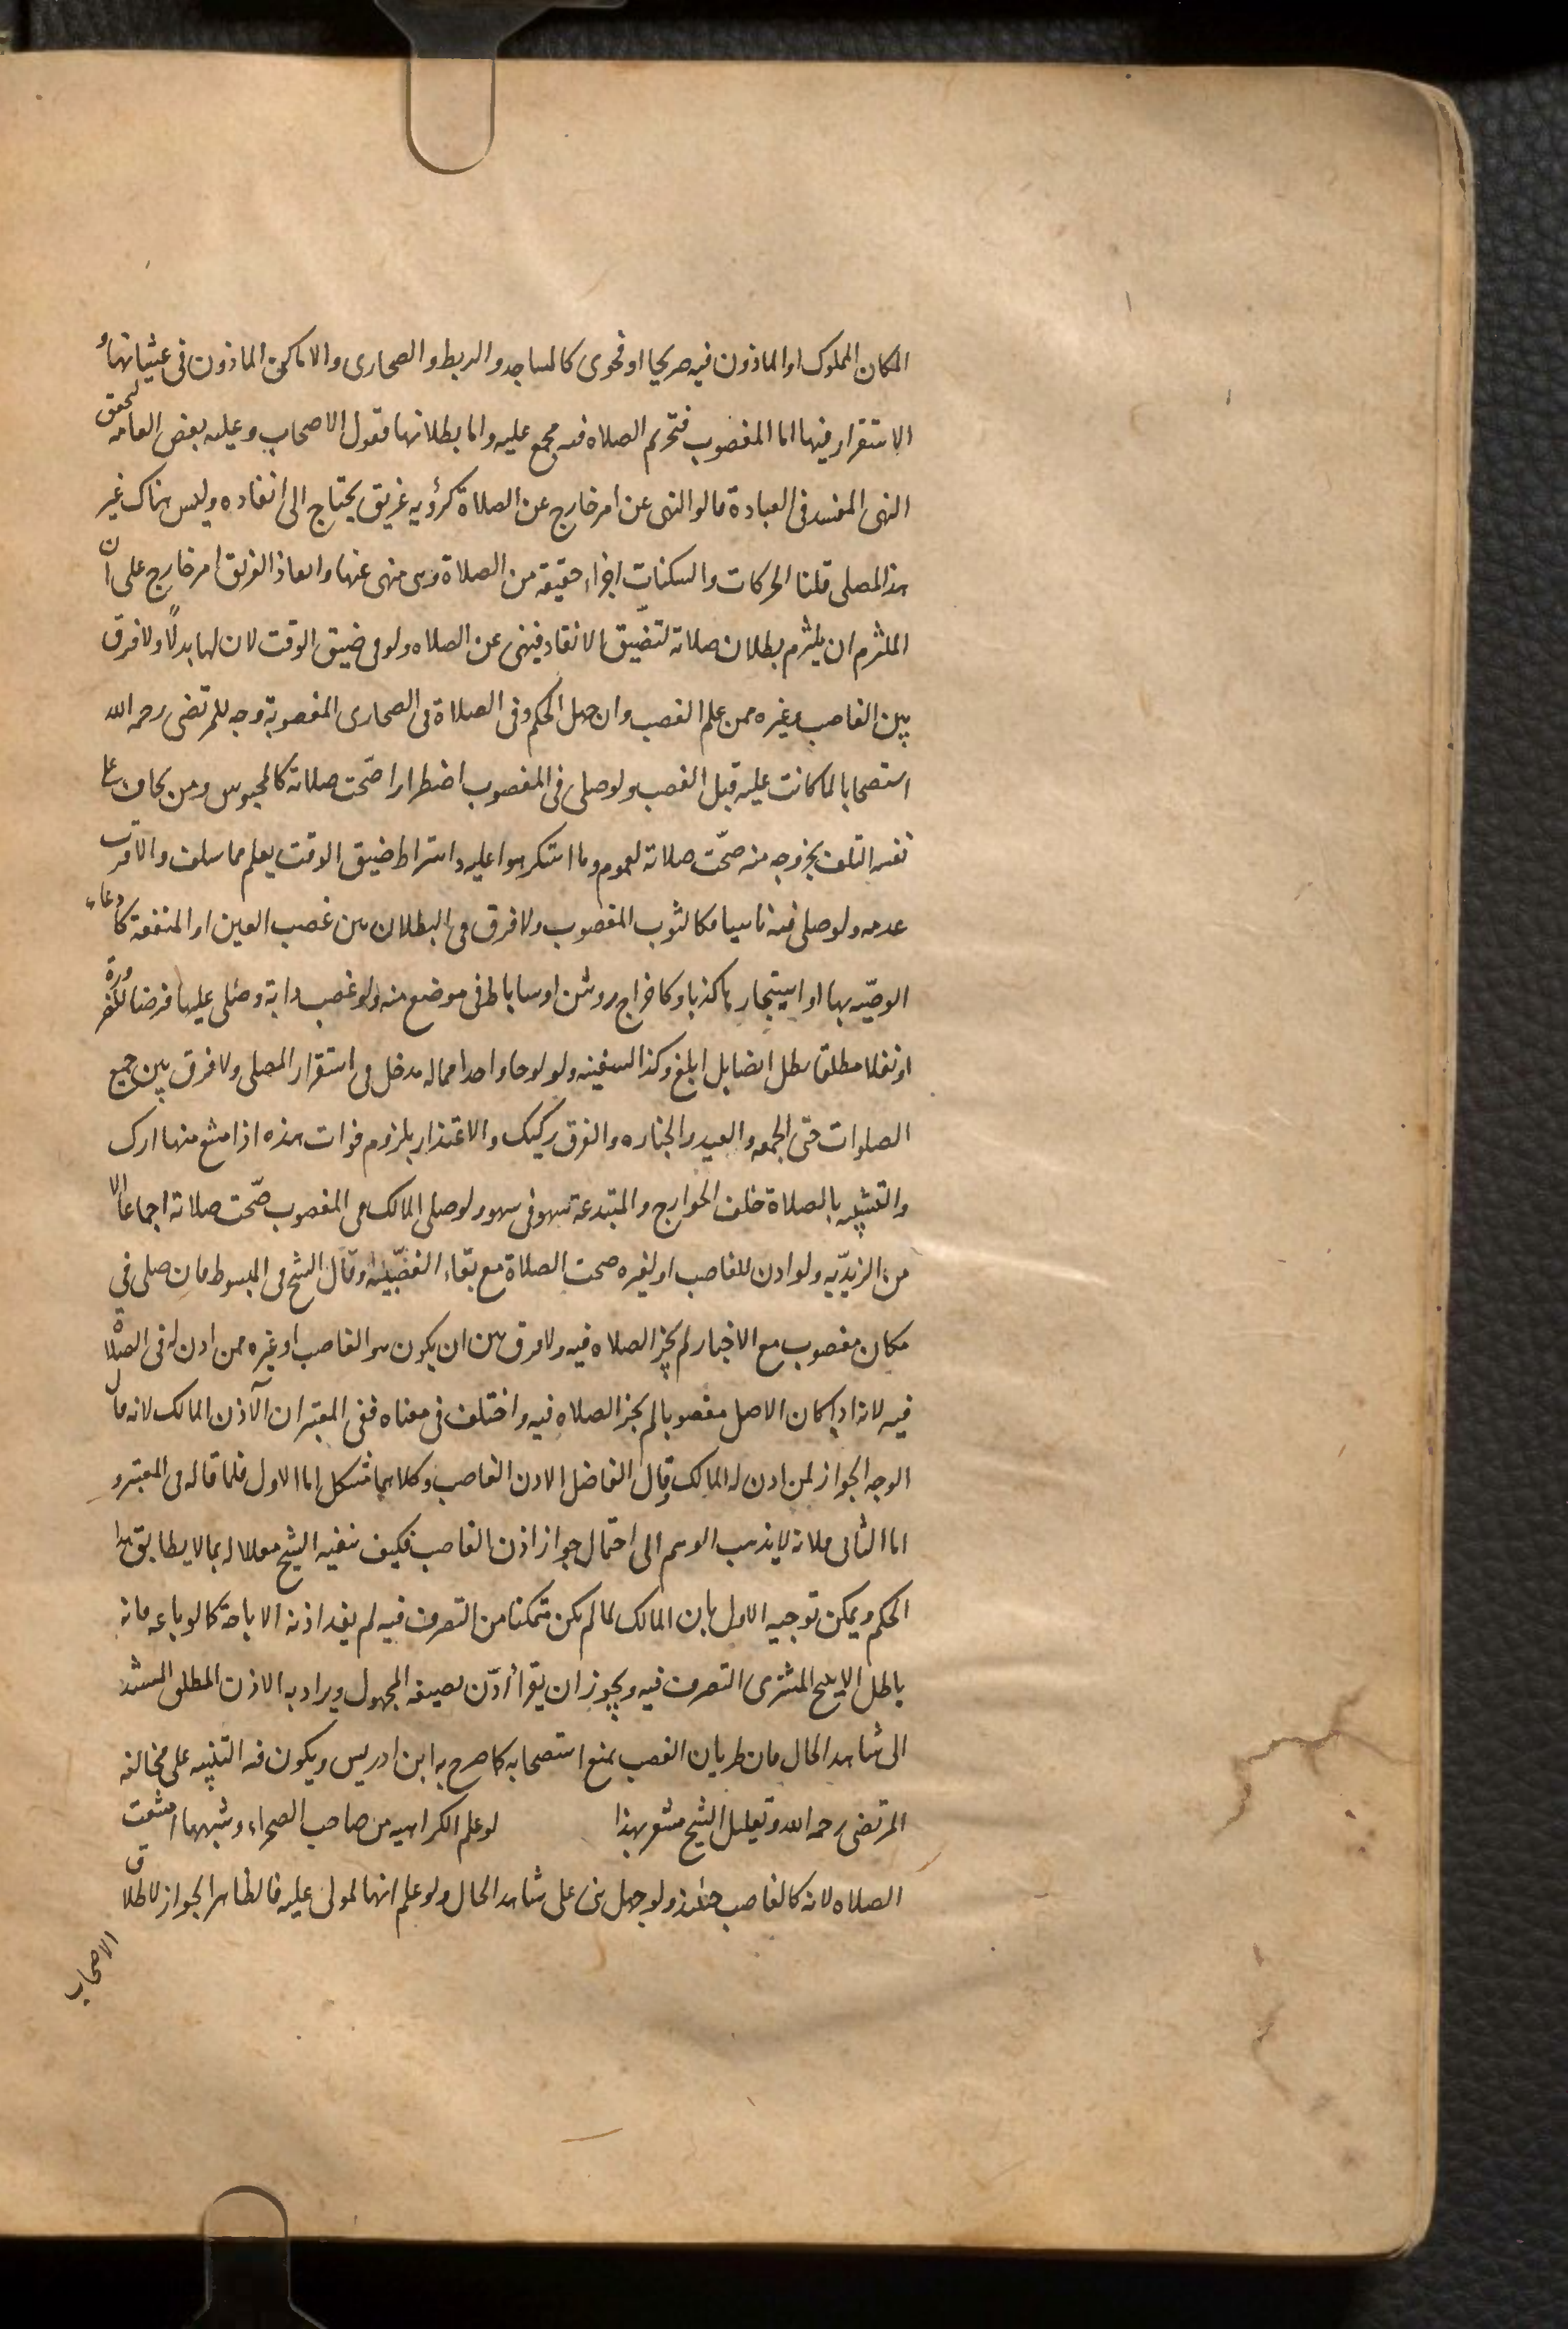 المكان المملوك او الماذون فيه صريحا او فحوى كالمساجد والربط والصحارى والاماكن الماذون فى غشيانها و
الاستقرار فيها اما المغصوب فتحريم الصلاه فيه مجمع عليه واما بطلانها فقول الاصحاب وعليه بعض العامه لتحقق
النهى المفسد فى العبادة قالوا النهى عن امر خارج عن الصلاة كرؤيه غريق يحتاج الى انقاده وليس هناك غير
هذا المصلى قلنا الحركات والسكنات اجزاء حقيقه من الصلاة وهى منهى عنها وانقاذ الغريق امر خارج على ان
الملتزم ان يلتزم بطلان صلاته لتضيّق الانقاد فينهى عن الصلاه ولو فى ضيق الوقت لان لها بدلاً ولا فرق
بين الغاصب وغيره ممن علم الغصب وان جهل الحكم وفى الصلاة فى الصحارى المغصوبة وجه للمرتضى رحمه الله
استصحابا لما كانت عليه قبل الغصب ولو صلى فى المغصوب اضطرارا صحّت صلاته كالمحبوس ومن يخاف على
نفسه التلف بخروجه منه صحّت صلاته لعموم وما استكرهوا عليه واشتراط ضيق الوقت يعلم مما سلف والاقرب
عدمه ولو صلى فيه ناسيا فكالثوب المغصوب ولا فرق فى البطلان بين غصب العين او المنفعة كادعاء
الوصيّه بها او استيجار كذبا وكاخراج روشن او ساباط فى موضع منه ولو غصب دابة وصلى عليها فرضا للضرورة
او نفلا مطلقا بطل ايضا بل ابلغ وكذا السفينه ولو لوحا واحدا مما له مدخل فى استقرار المصلى ولا فرق بين جميع
الصلوات حتى الجمعه والعيد والجنازه والفرق ركيك والاعتذار بلزوم فوات هذه اذا امتنع منها ارك
والتشبيه بالصلاة خلف الخوارج والمبتدعة سهو فى سهو ولو صلى المالك فى المغصوب صحّت صلاته اجماعا الا
من الزيديّه ولو اذن للغاصب او لغيره صحت الصلاة مع بقاء الغصبيّة وقال الشيخ فى المبسوط فان صلى فى
مكان مغصوب مع الاختيار لم يجز الصلاه فيه ولا فرق بين ان يكون هو الغاصب او غيره ممن اذن له فى الصلاة
فيه لانه اذا كان الاصل مغصوبا لم يجز الصلاه فيه واختلف فى معناه ففى المعتبر ان الآذن المالك لانه قال
الوجه الجواز لمن اذن له المالك وقال الفاضل الاذن الغاصب وكلاهما مشكل اما الاول فلما قاله فى المعتبر و
اما الثانى فلانه لا يذهب الوهم الى احتمال جواز اذن الغاصب فكيف ينفيه الشيخ معللا له بما لا يطابق هذا
الحكم ويمكن توجيه الاول بان المالك لما لم يكن متمكنا من التصرف فيه لم يفد اذنه الاباحة كما لو باعه فانه
باطل لا يبيح المشترى التصرف فيه ويجوز ان يقرأ اذن بصيغه المجهول ويراد به الاذن المطلق المستند
الى شاهد الحال فان طريان الغصب يمنع استصحابه كما صرح به ابن ادريس ويكون فيه التنبيه على مخالفه
المرتضى رحمه الله وتعليل الشيخ مشعر بهذا لو علم الكراهيه من صاحب الصحراء وشبهها امتنعت
الصلاه لانه كالغاصب حينئذ ولو جهل بنى على شاهد الحال ولو علم انها لمولى عليه فالظاهر الجواز لاطلاق
الاصحاب